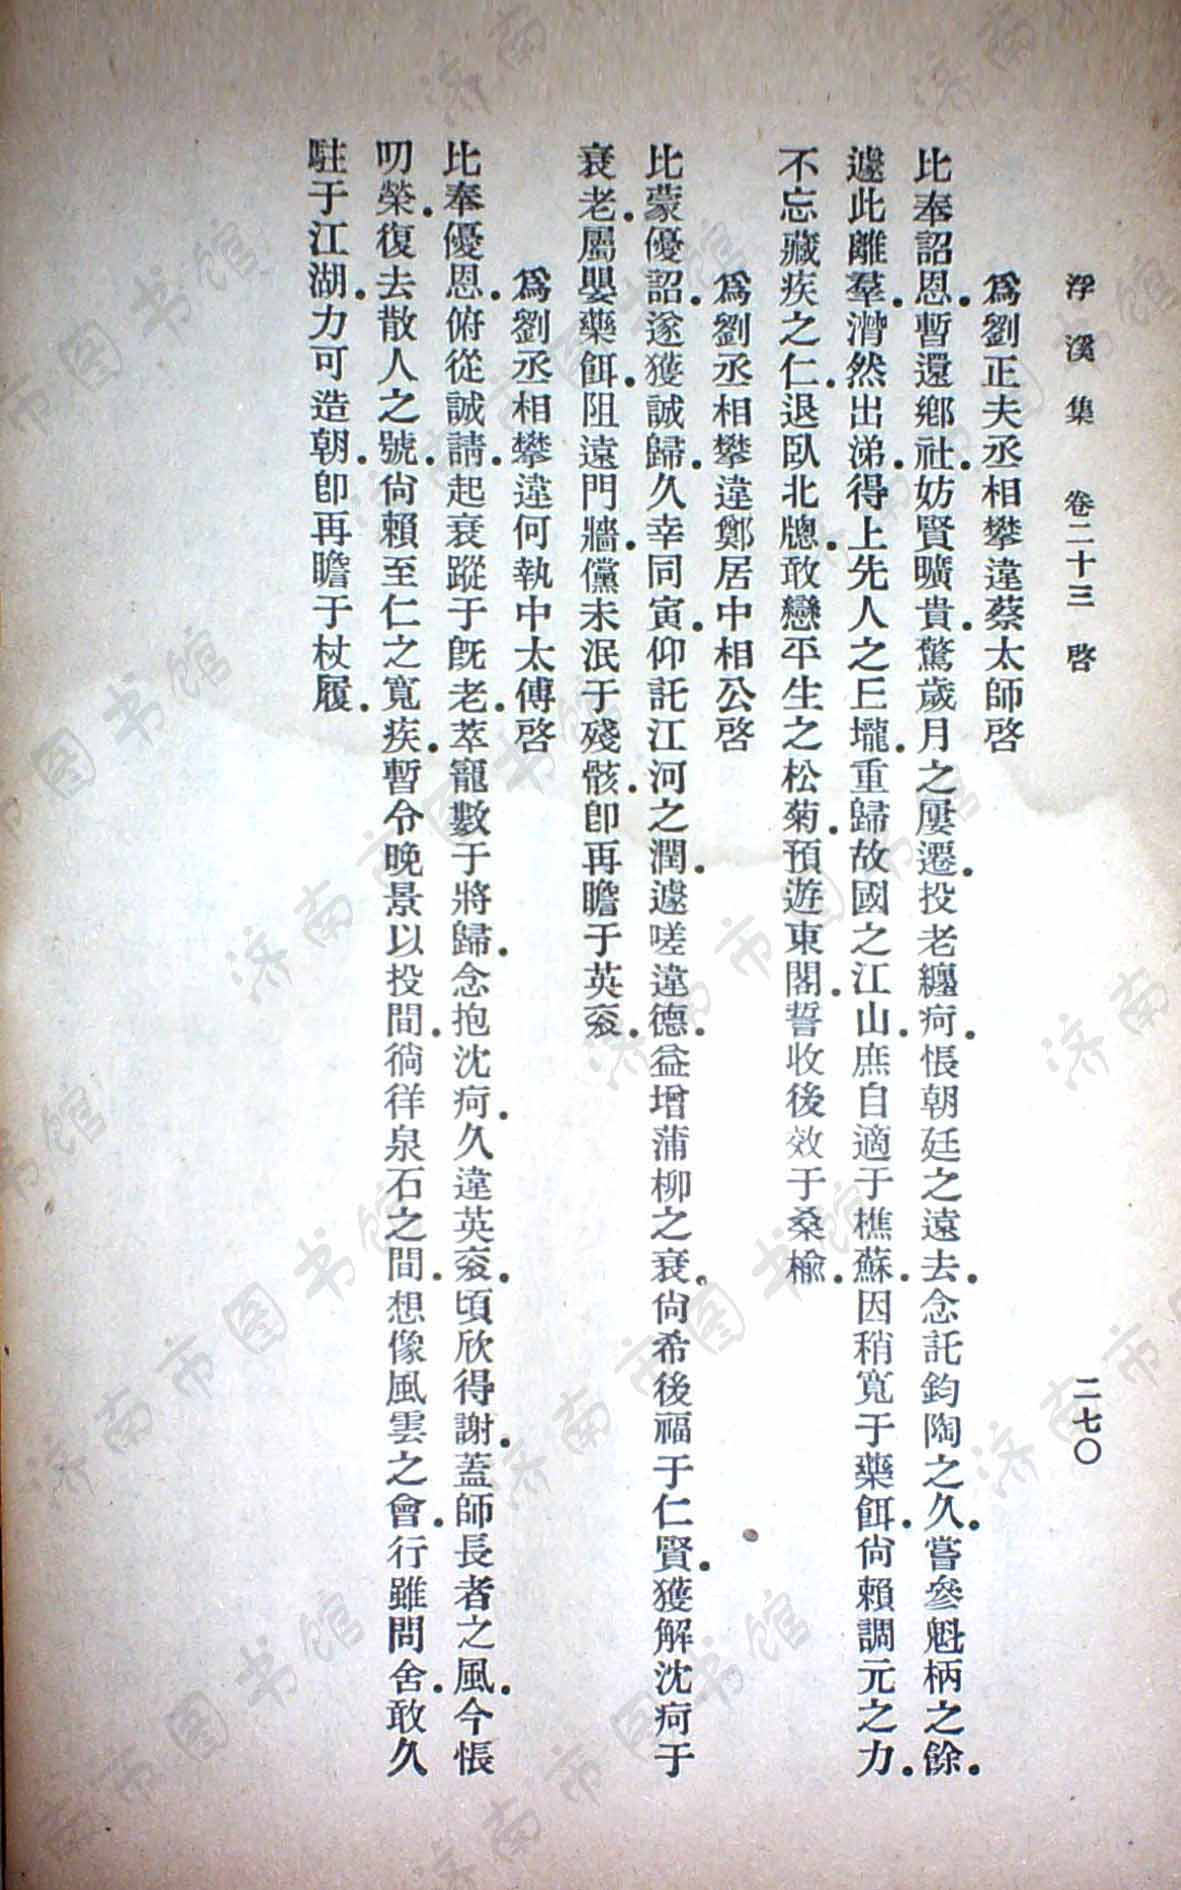 浮溪集 卷二十三 啓 二七〇
爲劉正夫丞相攀違蔡太師啓
比奉詔恩．暫還鄉社．妨賢曠貴驚歲月之屢遷．投老纏疴．悵朝廷之遠去．念託鈞陶之久．嘗參魁柄之餘．
遽此離羣．潸然出涕．得上先人之丘壠．重歸故國之江山．庶自適于樵蘇．因稍寬于藥餌．尙賴調元之力．
不忘藏疾之仁．退臥北牕．敢戀平生之松菊．預遊東閣．誓收後效于桑榆．
爲劉丞相攀違鄭居中相公啓
比蒙優詔．遂獲誠歸．久幸同寅．仰託江河之潤．遽嗟違德．益增蒲柳之衰．尙希後福于仁賢．獲解沈疴于
衰老．屬嬰藥餌．阻遠門牆．儻未泯于殘骸．卽再瞻于英袞．
爲劉丞相攀違何執中太傅啓
比奉優恩．俯從誠請．起衰蹤于旣老．萃寵數于將歸．念抱沈疴．久違英袞．頃欣得謝．蓋師長者之風．今悵
叨榮．復去散人之號．尙賴至仁之寬疾．暫令晚景以投間．徜徉泉石之間．想像風雲之會．行雖問舍．敢久
駐于江湖．力可造朝．卽再瞻于杖履．